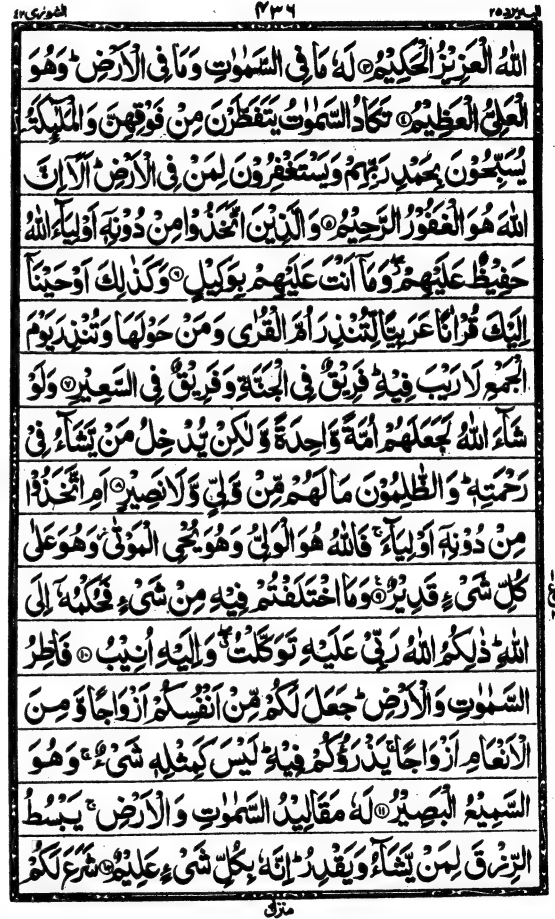 الشورٰى ٤٢ ٤٣٦ اليه يرد ٢٥
اللّٰهُ الْعَزِيْزُ الْحَكِيْمُ ﴿۳﴾ لَهٗ مَا فِى السَّمٰوٰتِ وَمَا فِى الْاَرْضِ ؕ وَهُوَ
الْعَلِىُّ الْعَظِيْمُ ﴿۴﴾ تَكَادُ السَّمٰوٰتُ يَتَفَطَّرْنَ مِنْ فَوْقِهِنَّ وَالْمَلٰٓئِكَةُ
يُسَبِّحُوْنَ بِحَمْدِ رَبِّهِمْ وَيَسْتَغْفِرُوْنَ لِمَنْ فِى الْاَرْضِ ؕ اَلَاۤ اِنَّ
اللّٰهَ هُوَ الْغَفُوْرُ الرَّحِيْمُ ﴿۵﴾ وَالَّذِيْنَ اتَّخَذُوْا مِنْ دُوْنِهٖۤ اَوْلِيَآءَ اللّٰهُ
حَفِيْظٌ عَلَيْهِمْ ۖ وَمَاۤ اَنْتَ عَلَيْهِمْ بِوَكِيْلٍ ﴿۶﴾ وَكَذٰلِكَ اَوْحَيْنَاۤ
اِلَيْكَ قُرْاٰنًا عَرَبِيًّا لِّتُنْذِرَ اُمَّ الْقُرٰى وَمَنْ حَوْلَهَا وَتُنْذِرَ يَوْمَ
الْجَمْعِ لَا رَيْبَ فِيْهِ ؕ فَرِيْقٌ فِى الْجَنَّةِ وَفَرِيْقٌ فِى السَّعِيْرِ ﴿۷﴾ وَلَوْ
شَآءَ اللّٰهُ لَجَعَلَهُمْ اُمَّةً وَّاحِدَةً وَّلٰكِنْ يُّدْخِلُ مَنْ يَّشَآءُ فِىْ
رَحْمَتِهٖ ؕ وَالظّٰلِمُوْنَ مَا لَهُمْ مِّنْ وَّلِىٍّ وَّلَا نَصِيْرٍ ﴿۸﴾ اَمِ اتَّخَذُوْا
مِنْ دُوْنِهٖۤ اَوْلِيَآءَ ۚ فَاللّٰهُ هُوَ الْوَلِىُّ وَهُوَ يُحْىِ الْمَوْتٰى ۚ وَهُوَ عَلٰى
كُلِّ شَىْءٍ قَدِيْرٌ ﴿۹﴾ وَمَا اخْتَلَفْتُمْ فِيْهِ مِنْ شَىْءٍ فَحُكْمُهٗۤ اِلَى
اللّٰهِ ؕ ذٰلِكُمُ اللّٰهُ رَبِّىْ عَلَيْهِ تَوَكَّلْتُ ۖ وَاِلَيْهِ اُنِيْبُ ﴿۱۰﴾ فَاطِرُ
السَّمٰوٰتِ وَالْاَرْضِ ؕ جَعَلَ لَكُمْ مِّنْ اَنْفُسِكُمْ اَزْوَاجًا وَّ مِنَ
الْاَنْعَامِ اَزْوَاجًا ۚ يَذْرَؤُكُمْ فِيْهِ ؕ لَيْسَ كَمِثْلِهٖ شَىْءٌ ۚ وَهُوَ
السَّمِيْعُ الْبَصِيْرُ ﴿۱۱﴾ لَهٗ مَقَالِيْدُ السَّمٰوٰتِ وَالْاَرْضِ ۚ يَبْسُطُ
الرِّزْقَ لِمَنْ يَّشَآءُ وَيَقْدِرُ ؕ اِنَّهٗ بِكُلِّ شَىْءٍ عَلِيْمٌ ﴿۱۲﴾ شَرَعَ لَكُمْ
منزل